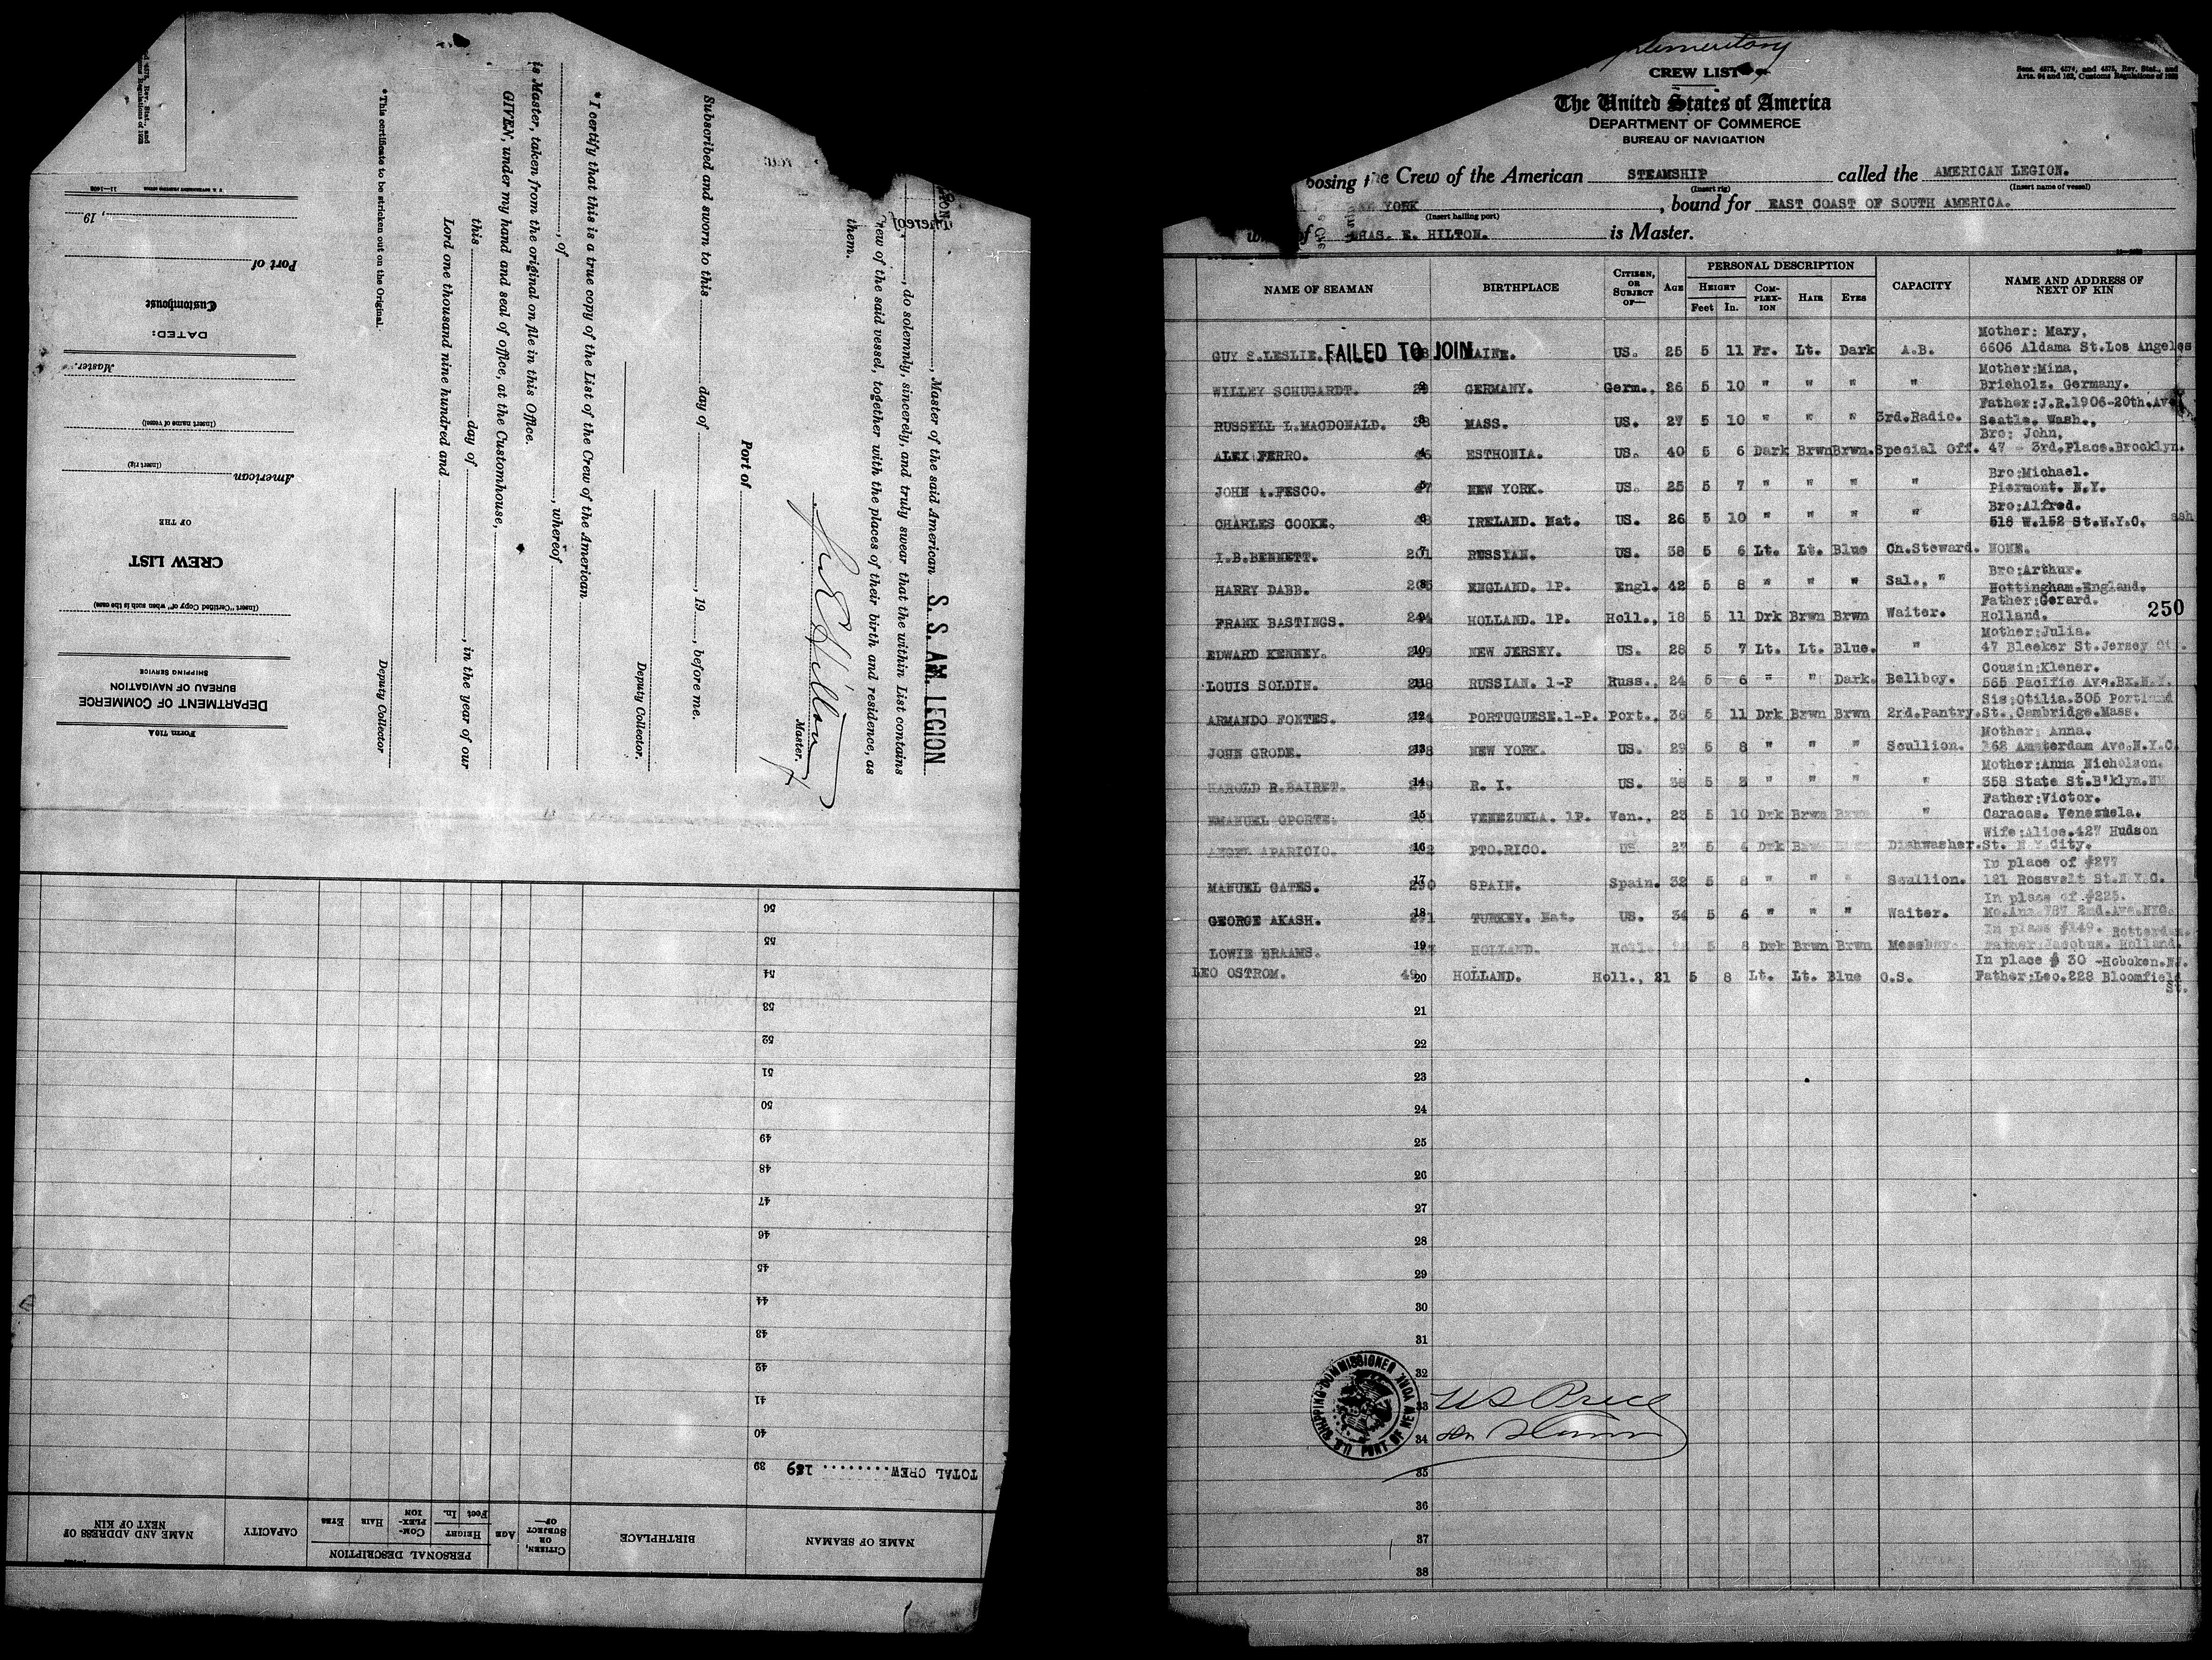 d 4573, Rev. Stat., and
ms Regulations of 1923
U. S. GOVERNMENT PRINTING OFFICE 11—1403
, 19
Port of
Customhouse
DATED:
Master.
(Insert name of vessel)
(Insert rig)
American
OF THE
CREW LIST
(Insert "Certified Copy of" when such is the case)
SHIPPING SERVICE
BUREAU OF NAVIGATION
DEPARTMENT OF COMMERCE
Form 710A
S. S. AM. LEGION
, Master of the said American
, do solemnly, sincerely, and truly swear that the within List contains
rew of the said vessel, together with the places of their birth and residence, as
thereof
them.
Master.
Port of
Subscribed and sworn to this day of , 19 , before me.
Deputy Collector.
*I certify that this is a true copy of the List of the Crew of the American
, of , whereof
is Master, taken from the original on file in this Office.
GIVEN, under my hand and seal of office, at the Customhouse,
this day of , in the year of our
Lord one thousand nine hundred and
Deputy Collector
*This certificate to be stricken out on the Original.
NAME OF SEAMAN
BIRTHPLACE
CITIZEN, OR SUBJECT OF—
AGE
PERSONAL DESCRIPTION
HEIGHT
Feet In.
COM-PLEX-ION
HAIR
EYES
CAPACITY
NAME AND ADDRESS OF NEXT OF KIN
TOTAL CREW........ 39
40
41
42
43
44
45
46
47
48
49
50
51
52
53
54
55
56
CREW LIST
Secs. 4573, 4574, and 4575, Rev. Stat., and
Arts. 94 and 162, Customs Regulations of 1923
The United States of America
DEPARTMENT OF COMMERCE
BUREAU OF NAVIGATION
posing the Crew of the American STEAMSHIP called the AMERICAN LEGION.
(Insert rig) (Insert name of vessel)
YORK , bound for EAST COAST OF SOUTH AMERICA.
(Insert hailing port)
of HAS. E. HILTON. is Master.
NAME OF SEAMAN BIRTHPLACE CITIZEN, OR SUBJECT OF— AGE PERSONAL DESCRIPTION CAPACITY NAME AND ADDRESS OF NEXT OF KIN
HEIGHT COM-PLEX-ION HAIR EYES
Feet In.
Mother: Mary,
GUY S.LESLIE. FAILED TO JOIN MAINE. US. 25 5 11 Fr. Lt. Dark A.B. 6606 Aldama St.Los Angeles
Mother:Mina,
WILLEY SCHUGARDT. GERMANY. Germ., 26 5 10 " " " " Brieholz. Germany.
Father:J.R.1906-20th.Ave
RUSSELL L.MACDONALD. MASS. US. 27 5 10 " " " 3rd.Radio. Seatle. Wash.,
Bro: John,
ALEX FERRO. ESTHONIA. US. 40 5 6 Dark Brwn Brwn. Special Off. 47 - 3rd.Place.Brooklyn.
Bro:Michael.
JOHN A.FESCO. NEW YORK. US. 25 5 7 " " " " Piermont. N.Y.
Bro:Alfred.
CHARLES COOKE. IRELAND. Nat. US. 26 5 10 " " " " 518 W.152 St.N.Y.C.
I.B.BENNETT. 201 RUSSIAN. US. 38 5 6 Lt. Lt. Blue Ch.Steward. NONE.
Bro:Arthur.
HARRY DABB. ENGLAND. 1P. Engl. 42 5 8 " " " Sal., " Nottingham.England.
Father:Gerard.
FRANK BASTINGS. HOLLAND. 1P. Holl., 18 5 11 Drk Brwn Brwn Waiter. Holland. 250
Mother:Julia.
EDWARD KENNEY. 10 NEW JERSEY. US. 28 5 7 Lt. Lt. Blue. " 47 Bleeker St.Jersey
Cousin:Klener.
LOUIS SOLDIN. 11 RUSSIAN. 1-P Russ., 24 5 6 " " Dark. Bellboy. 565 Pacific Ave.Bx.N.Y.
Sis:Otilia.305 Portland
ARMANDO FONTES. 12 PORTUGUESE.1-P. Port., 36 5 11 Drk Brwn Brwn 2rd.Pantry. St., Cambridge.Mass.
Mother: Anna.
JOHN GRODE. 13 NEW YORK. US. 29 5 8 " " " Scullion. 268 Amsterdam Ave.N.Y.C.
Mother:Anna Nicholson.
HAROLD R.BAIRET. 14 R. I. US. 38 5 " " " " 358 State St.B'klyn.
Father:Victor.
EMANUEL OPORTE. 15 VENEZUELA. 1P. Ven., 23 5 10 Drk Brwn " Caracas. Venezuela.
Wife:Alice.427 Hudson
ANGEL APARICIO. 16 PTO.RICO. US. 27 5 Drk Dishwasher. St. N.Y.City.
In place of #277
MANUEL GATES. 17 SPAIN. Spain. 32 5 8 " " " Scullion. 121 Rossvelt St.N.Y.C.
In place of #225.
GEORGE AKASH. 18 TURKEY. Nat. US. 34 5 6 " " " Waiter. Mo.Ann 787 2nd.Ave.NYC.
In place #149. Rotterdam.
LOWIE BRAAMS. 19 HOLLAND. Holl. 5 8 Drk Brwn Brwn Messboy. Father:Jacobus. Holland.
In place # 30 -Hoboken.NJ.
LEO OSTROM. 20 HOLLAND. Holl., 21 5 8 Lt. Lt. Blue O.S. Father:Leo.228 Bloomfield
St.
21
22
23
24
25
26
27
28
29
30
31
32
33
34
35
36
37
38
U.S. SHIPPING COMMISSIONER
PORT OF NEW YORK